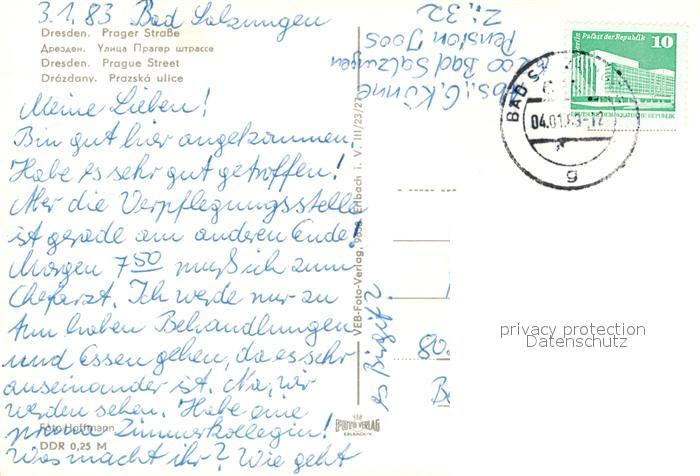 3.1.83 Bad Salzungen
Dresden. Prager Straße
Дрезден. Улица Прагер штрассе
Dresden. Prague Street
Drážďany. Pražská ulice
Meine Lieben!
Bin gut hier angekommen.
Habe es sehr gut getroffen!
Aber die Verpflegungsstelle
ist gerade am anderen Ende!
Morgen 7 50 muß ich zum
Chefarzt. Ich werde nur zu
tun haben Behandlungen
und Essen gehen, da es sehr
auseinander ist. Na, wir
werden sehen. Habe eine
prima Zimmerkollegin!
Was macht ihr? Wie geht
es Birgit?
Foto Hoffmann
DDR 0,25 M
VEB-Foto-Verlag, Erlbach i. V. III/23/27
FOTO VERLAG
ERLBACH/V.
Abs.: G. Künne
Bad Salzungen
Pension Joos
Zi; 32
Palast der Republik
10
DEUTSCHE DEMOKRATISCHE REPUBLIK
BAD
04.01.83-12
g
80
privacy protection
Datenschutz